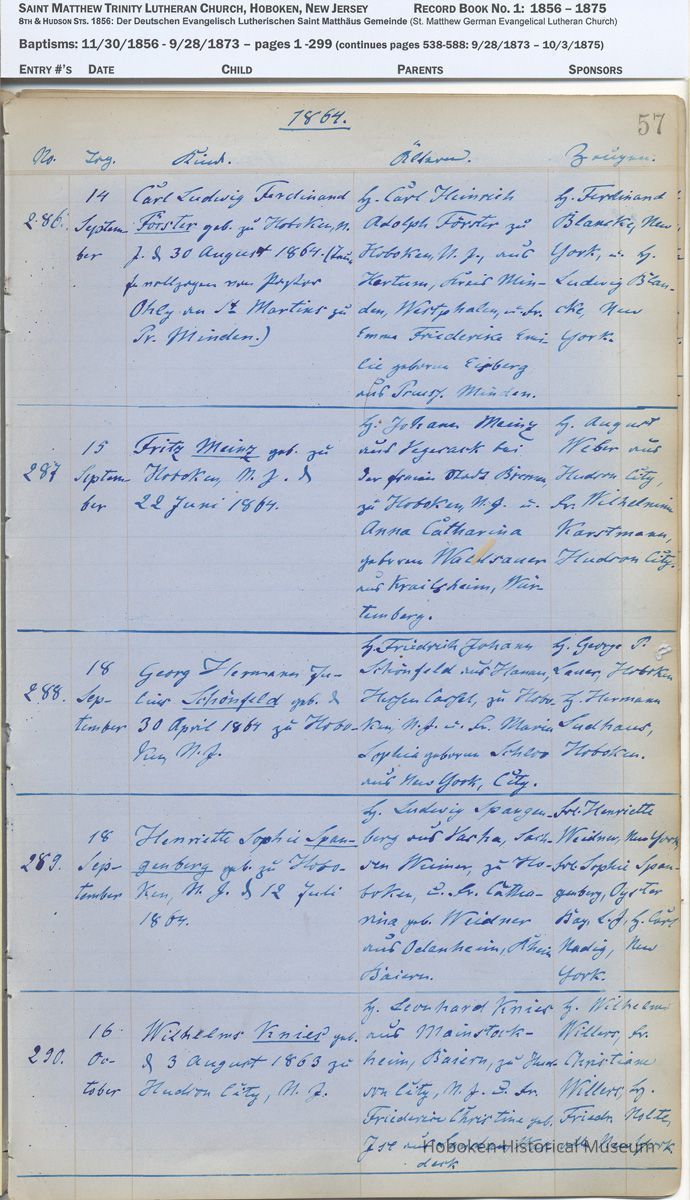 SAINT MATTHEW TRINITY LUTHERAN CHURCH, HOBOKEN, NEW JERSEY RECORD BOOK NO. 1: 1856 – 1875
8TH & HUDSON STS. 1856: Der Deutschen Evangelisch Lutherischen Saint Matthäus Gemeinde (St. Matthew German Evangelical Lutheran Church)
Baptisms: 11/30/1856 - 9/28/1873 – pages 1 -299 (continues pages 538-588: 9/28/1873 – 10/3/1875)
ENTRY #'S DATE CHILD PARENTS SPONSORS
1864.
57
No. Tag. Kind. Ältern. Zeugen.
286.
14
Septem-
ber
Carl Ludwig Ferdinand
Förster geb. zu Hoboken, N.
J. d 30 August 1864. (Tau-
fe vollzogen von Pastor
Ohly an St. Martins zu
Pr. Minden.)
H. Carl Heinrich
Adolph Förster zu
Hoboken, N. J., aus
Hartum, Kreis Min-
den, Westphalen, u. Fr.
Emma Friederike Emi-
lie geboren Eipberg
aus Preuss. Minden.
H. Ferdinand
Blancke, New
York, u. H.
Ludwig Blan-
cke, New
York.
287
15
Septem-
ber
Fritz Meinz geb. zu
Hoboken, N. J. d
22 Juni 1864.
H. Johann Meinz
aus Vegesack bei
der freien Stadt Bremen
zu Hoboken, N. J. u.
Anna Catharina
geboren Waldsauer
aus Krailsheim, Wür-
temberg.
H. August
Weber aus
Hudson City,
Fr. Wilhelmine
Karstmann,
Hudson City.
288.
18
Sep-
tember
Georg Hermann Ju-
lius Schönfeld geb. d
30 April 1864 zu Hobo-
ken, N. J.
H. Friedrich Johann
Schönfeld aus Hanau,
Hessen Cassel, zu Hobo-
ken, N. J. u. Fr. Maria
Sophia geboren Schloo
aus New York, City.
H. George P.
Lauer, Hoboken
H. Hermann
Sudhaus,
Hoboken.
289.
18
Sep-
tember
Henriette Sophie Span-
genberg geb. zu Hobo-
ken, N. J. d 12 Juli
1864.
H. Ludwig Spangen-
berg aus Vacha, Sach-
sen Weimar, zu Ho-
boken, u. Fr. Catha-
rina geb. Weidner
aus Odenheim, Rhein
Baiern.
Frl. Henriette
Weidner, New York
Frl. Sophie Span-
genberg, Oyster
Bay, L. I., H. Carl
Nadig, New
York.
290.
16
Oc-
tober
Wilhelms Knies geb.
d 3 August 1863 zu
Hudson City, N. J.
H. Leonhard Knies
aus Mainstock-
heim, Baiern, zu Hud-
son City, N. J. u. Fr.
Friederica Christine geb.
H. Wilhelm
Willers, Fr.
Christiane
Willers, H.
Friedr. Nolte,
York
Hoboken Historical Museum